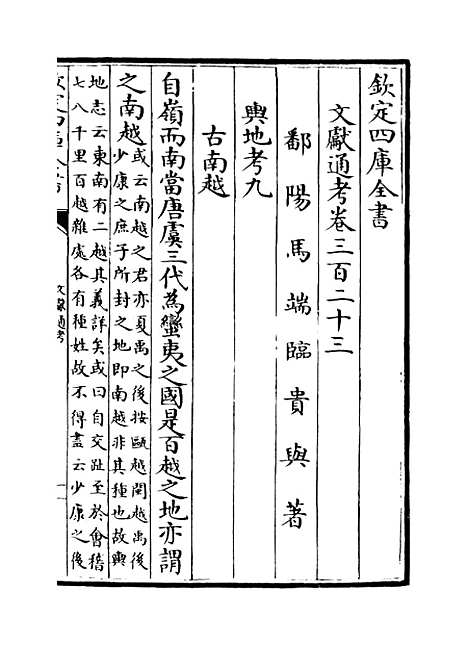 欽定四庫全書
文獻通考卷三百二十三
鄱陽馬端臨貴與著
輿地考九
古南越
自嶺而南當唐虞三代為蠻夷之國是百越之地亦謂
之南越或云南越之君亦夏禹之後按甌越閩越禹後
少康之庶子所封之地即南越非其種也故輿
地志云東南有二越其義詳矣或曰自交趾至於會稽
七八千里百越雜處各有種姓故不得盡云少康之後
文獻通考